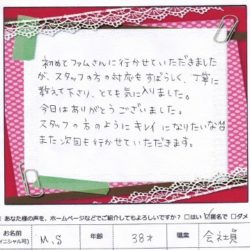 初めてファムさんに行かせていただきました
が、スタッフの方の対応もすばらしく、丁寧に
教えて下さり、とても気に入りました。
今日はありがとうございました。
スタッフの方のようにキレイになりたいな
また次回も行かせていただきます。
あなた様の声を、ホームページなどでご紹介してもよろしいですか? □はい ☑匿名で □ダメ
お名前
(イニシャル可)
M.S
年齢
38才
職業
会社員